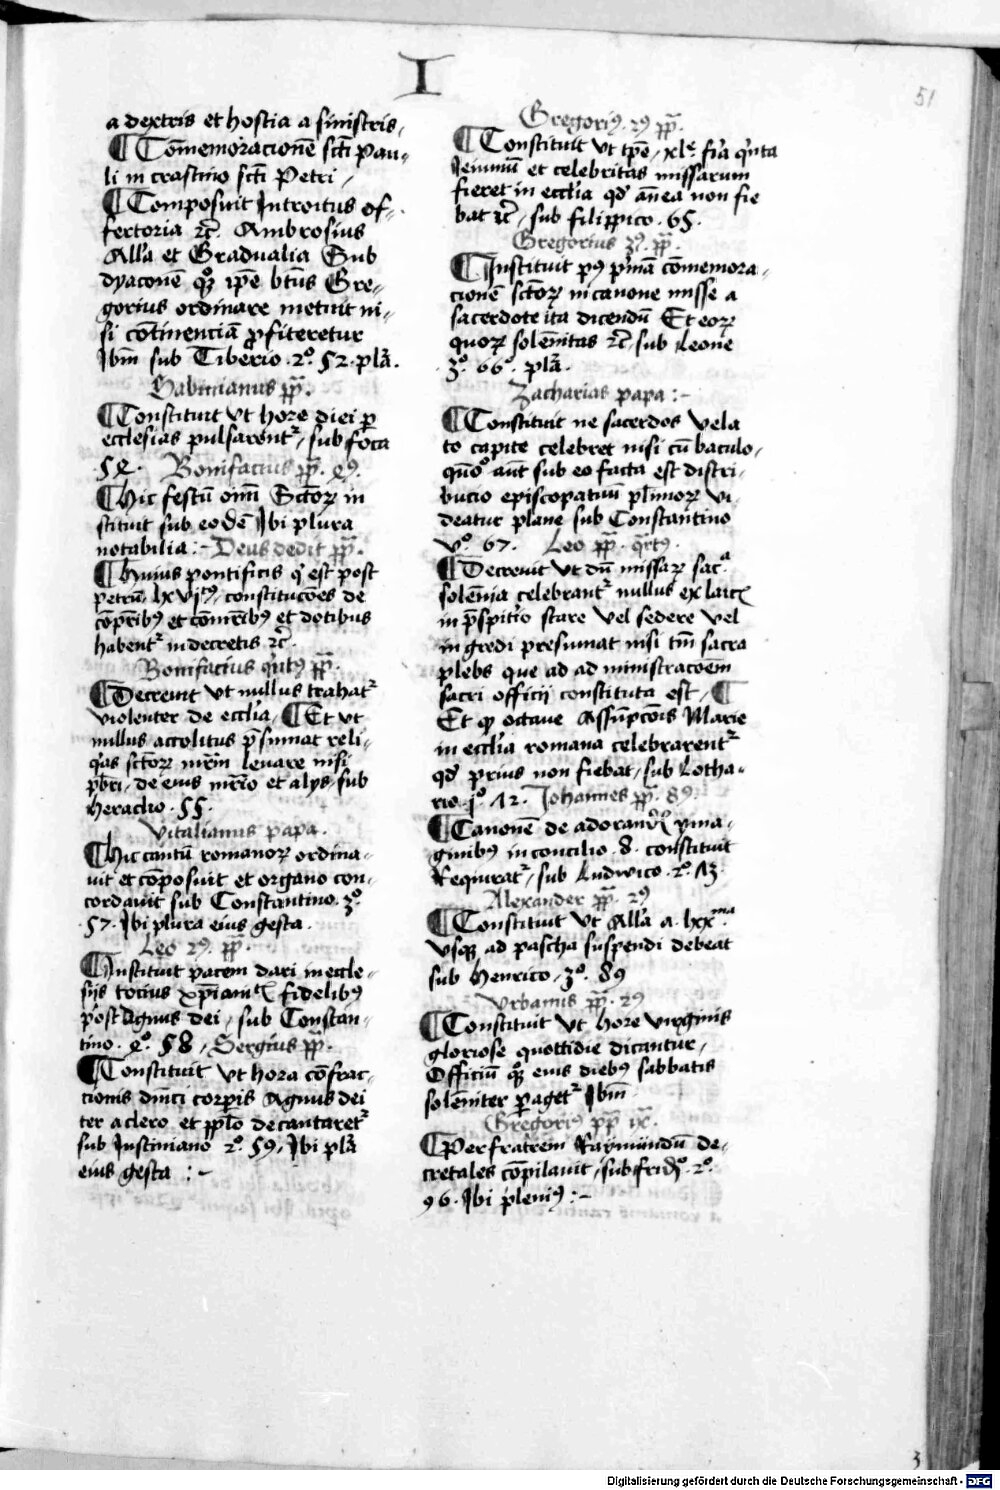 I
51
a dextris et hostia a sinistris,
¶ Com̄emoracionē sc̄ti Pau-
li in crastino sc̄ti Petri,
¶ Composuit Introitus of-
fertoria ⁊c̄. Ambrosius
All'a et Gradualia Sub
dyaconē qꝫ ip̄e bt̄us Gre-
gorius ordinare metuit ni-
si cōtinenciā ꝓfiteretur
Ibīm sub Tiberio .2°. 52. pl'a.
Sabinianus pp̄.
¶ Constituit vt hore diei ꝑ
ecclesias pulsarent᷑, sub foca
54. Bonifacius pp̄. 4⁹.
¶ Hic festū om̄i Sctoꝝ in
stituit sub eodē Ibi plura
notabilia :- Deus dedit pp̄.
¶ Huius pontificis q' est post
petrū lxvj⁹, constitucōes de
cōpr̄ibꝰ et com̄r̄ibꝰ et dotibus
habent᷑ in decretis ⁊c̄.
Bonifacius q'ntꝰ pp̄.
¶ Decreuit vt nullus trahat᷑
violenter de eccl'ia, ¶ Et vt
nullus accolitus p̄sumat reli-
q'as sctoꝝ mr̄im leuare nisi
pb̄ri, de eius mr̄io et alys, sub
Heraclio .55.
Vitalianus papa.
¶ Hic cantū romanoꝝ ordina-
uit et cōposuit et organo con-
cordauit sub Constantino. 3°.
57. Ibi plura eius gesta.
Leo 2⁹. pp̄.
¶ Instituit pacem dari in eccle-
siis totius xp̄iani fidelibꝰ
post Agnus dei, sub Constan-
tino. 4°. 58, Sergius pp̄.
¶ Constituit vt hora cōfrac-
cionis dn̄ici corꝑis Agnus dei
ter a clero et pp̄lo decantaret᷑
sub Iustiniano 2°. 59, Ibi pl'a
eius gesta :-
Gregoriꝰ. 2⁹ pp̄.
¶ Constituit vt tp̄e, xl.ᵉ fi'a q'nta
Ieiuniū et celebritas missarum
fieret in eccl'ia qd' an̄ea non fie
bat ⁊c̄, sub filippico. 65.
Gregorius 3⁹. pp̄.
¶ Instituit pꝰ p'mā cōmemora-
cionē sctoꝝ in canone misse a
sacerdote ita dicendū Et eoꝝ
quoꝝ solēnitas ⁊c̄, sub Leone
3°. 66°. pl'a.
Zacharias papa :-
¶ Constituit ne sacerdos vela
to capite celebret nisi cū baculo,
quō aūt sub eo facta est distri-
bucio episcopatuū pl'imoꝝ vi
deatur plane sub Constantino
v°. 67. Leo pp̄. q'rtꝰ.
¶ Decreuit vt dū missaꝝ sac.ᵃ
solēnia celebrant᷑ nullus ex laicꝭ
in p̄spit'io stare vel sedere vel
in gredi presumat nisi tm̄ sacra
plebs que ad ad ministracōem
sacri officij constituta est, ¶
Et qꝫ octaue Assūpcōis Marie
in eccl'ia romana celebrarent᷑
qd' prius non fiebat, sub Lotha-
rio. j°. 72. Johannes pp̄. 8⁹.
¶ Canonē de adorandꝭ yma-
ginibꝰ in concilio .8. constituit
Requirat᷑, sub Ludwico .2°. 73.
Alexander pp̄. 2⁹
¶ Constituit vt All'a a. lxx.ᵐᵃ
vsqꝫ ad pascha suspendi debeat
sub Henrico, 3°. 89
Vrbanus pp̄. 2⁹
¶ Constituit vt hore virginis
gloriose quottidie dicantur,
Officiū qꝫ eius diebꝰ sabbatis
solēniter ꝑaget᷑ Ibīm
Gregoriꝰ pp̄ ix.
¶ Per fratrem Raymundū de-
cretales cōpilauit, sub frid'°. 2°.
96. Ibi pleniꝰ :-
3
Digitalisierung gefördert durch die Deutsche Forschungsgemeinschaft - DFG